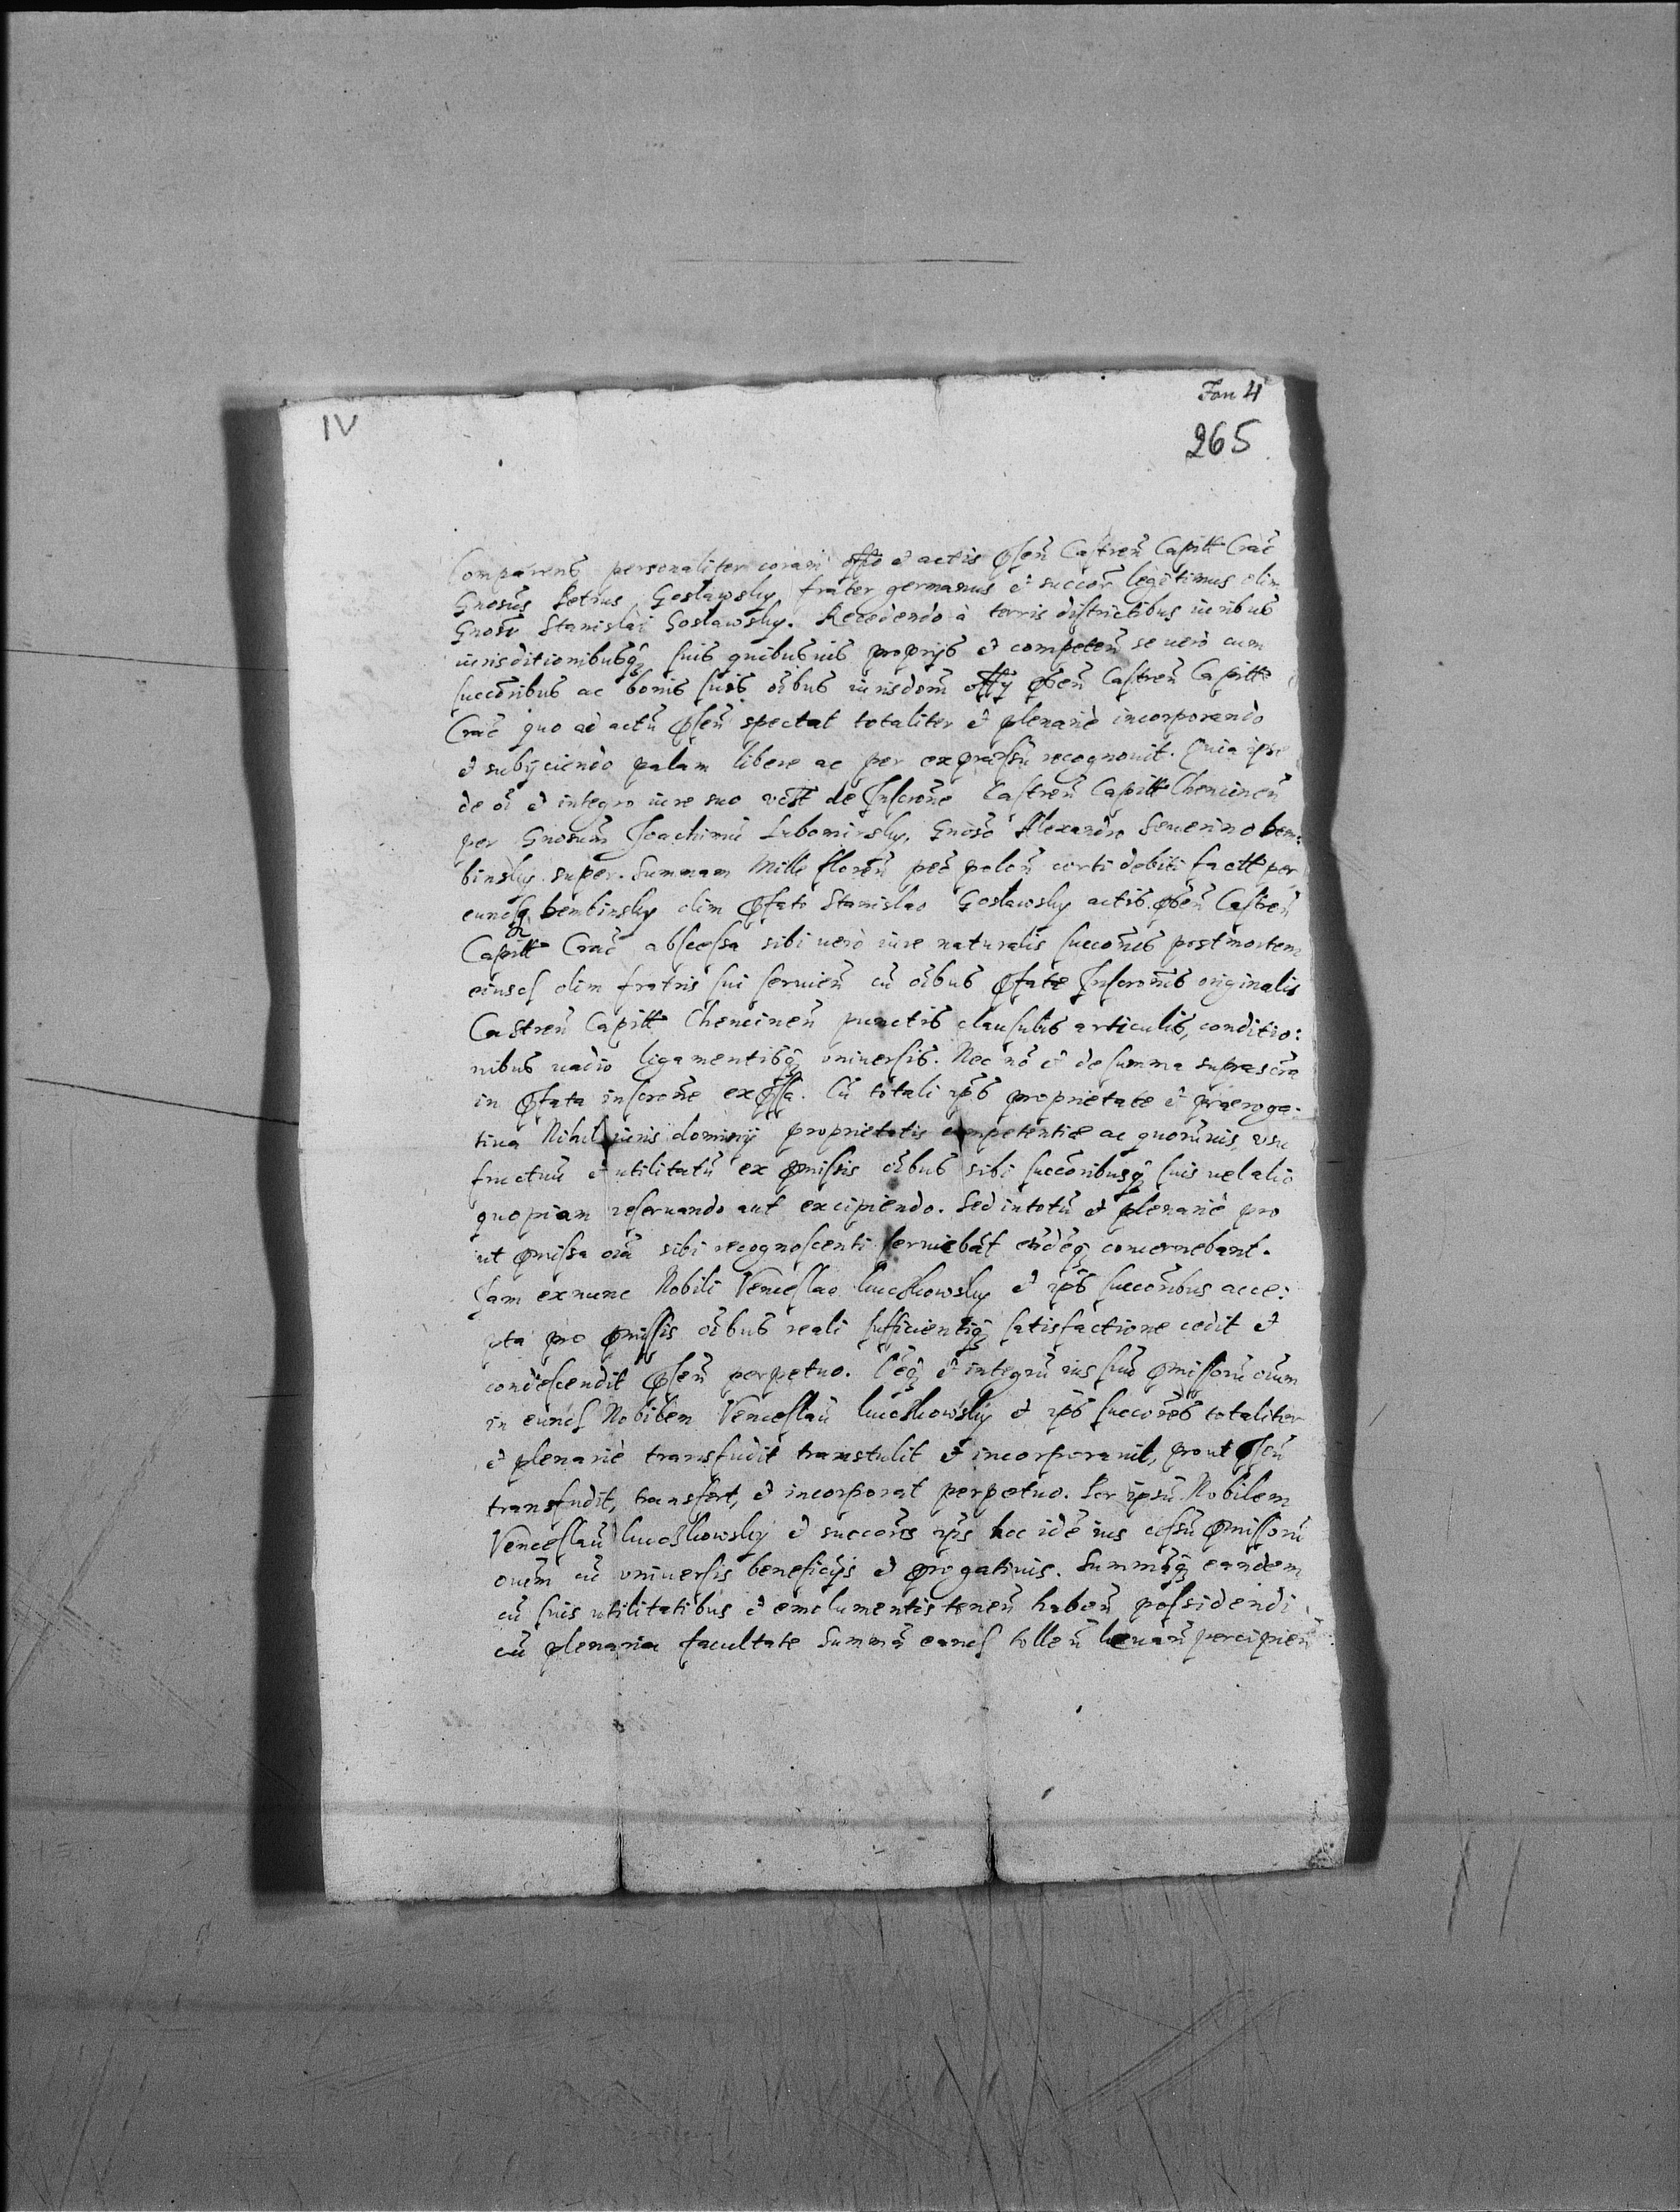 IV
Fon 4
265
Comparens personaliter coram offo et actis pñsen Castren Capitt Crac
Gnosus Petrus Goslawsky frater germanus et succor legitimus olim
Gnosi Stanislai Goslawsky. Recedendo à terris districtibus iuribus
iurisditionibusq suis quibusuis proprijs et competen se uerò cum
succoribus ac bonis suis oibus iurisdoni offij pñsen Castren Capitt
Crac quo ad actu pñsen spectat totaliter et plenariè incorporando
et subijciendo palam libere ac per expraessu recognouit. Quia ipse
de oi et integro iure suo de Inscrone Castren Capitt Chencinen
per Gnosum Joachimu Lubomirsky, Gnoso Alexandro Seuerino bem:
binsky super Summam Mille floren pec polon certi debiti per
eund bembinsky olim pfato Stanislao Goslawsky actis pñsen Castren
Capitt Crac abscessa sibi uerò iure naturalis succonis post mortem
eiusd olim fratris sui seruien cu oibus pfate Inscronis originalis
Castren Capitt Chencinen punctis clausulis articulis, conditio:
nibus uadio ligamentisq vniuersis. Nec nõ et de summa suprascra
in pfata inscrone expssa. Cu totali ips proprietate et praeroga:
tiua Nihil iuris dominij proprietatis competentiæ ac quorumuis, vsu
fructuu et utilitatu ex pmissis oibus sibi succoribusq suis uel alio
quopiam reseruando aut excipiendo. Sed in totu et plenariè pro
ut pmissa oia sibi recognoscenti seruiebat concernebant.
Jam ex nunc Nobili Venceslao et ips succoribus acce:
pta pro pmissis oibus reali sufficientiq satisfactione cedit et
condescendit pñsen perpetuo. et integru ius suu pmissoru oium
in eund Nobilem Venceslau et ips succores totaliter
et plenariè transfudit transtulit et incorporauit, prout pñsen
transfudit, transfert, et incorporat perpetuo. Per ipsu Nobilem
Venceslau et succores ips hoc idē ius cessu pmissoru
oium cu vniuersis beneficijs et progatiuis. Summaq eandem
cu suis utilitatibus et emolumentis tenen haben possidendi
cu plenaria facultate Summa eand tollen leuan percipien